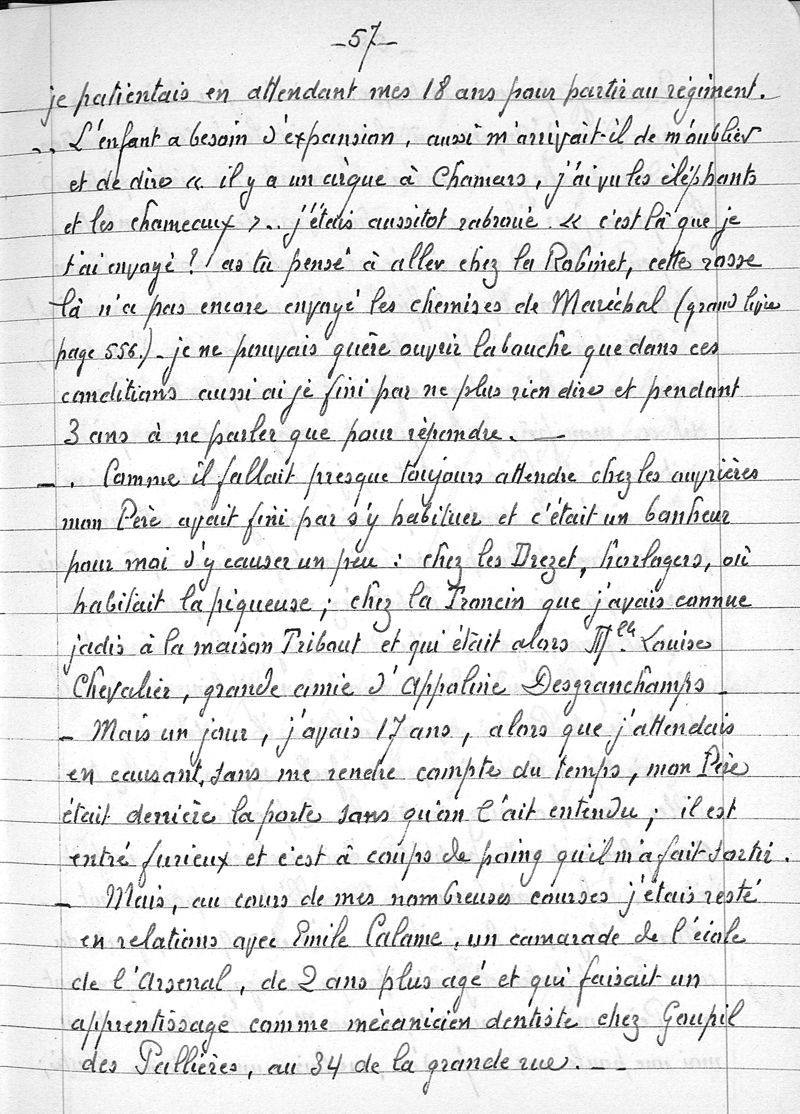 -57-
je patientais en attendant mes 18 ans pour partir au régiment.
.. L'enfant a besoin d'expansion, aussi m'arrivait-il de m'oublier
et de dire « il y a un cirque à Chamars, j'ai vu les éléphants
et les chameaux > .. j'étais aussitot rabroué. « c'est là que je
t'ai envoyé ? as tu pensé à aller chez la Robinet, cette rosse
là n'a pas encore envoyé les chemises de Maréchal (grand livre
page 556.) - je ne pouvais guère ouvrir la bouche que dans ces
conditions aussi ai je fini par ne plus rien dire et pendant
3 ans à ne parler que pour répondre. —
- . Comme il fallait presque toujours attendre chez les ouvrières
mon Père avait fini par s'y habituer et c'était un bonheur
pour moi d'y causer un peu : chez les Drezet, horlogers, où
habitait la piqueuse ; chez la Francin que j'avais connue
jadis à la maison Tribout et qui était alors Mlle Louise
Chevalier, grande amie d'Appoline Desgranchamps -
- Mais un jour, j'avais 17 ans, alors que j'attendais
en causant, sans me rendre compte du temps, mon Père
était derrière la porte sans qu'on l'ait entendu ; il est
entré furieux et c'est à coups de poing qu'il m'a fait sortir.
- Mais, au cours de mes nombreuses courses j'étais resté
en relations avec Emile Calame, un camarade de l'école
de l'Arsenal, de 2 ans plus agé et qui faisait un
apprentissage comme mécanicien dentiste chez Goupil
des Pallières, au 34 de la grande rue. - -